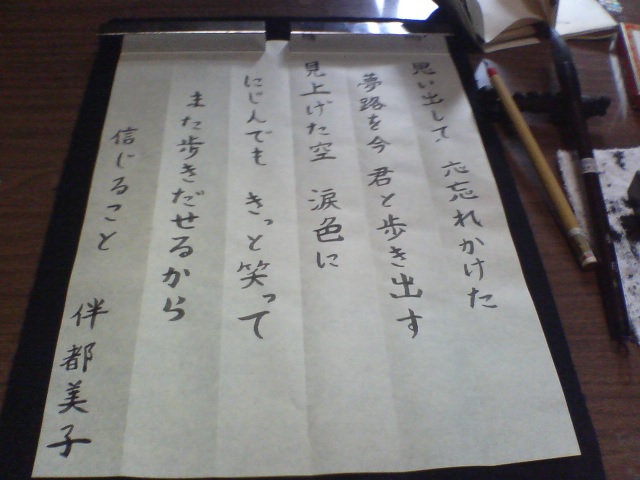 思い出して 心忘れかけた
夢路を今 君と歩き出す
見上げた空 涙色に
にじんでも きっと笑って
また歩きだせるから
信じること 伴都美子